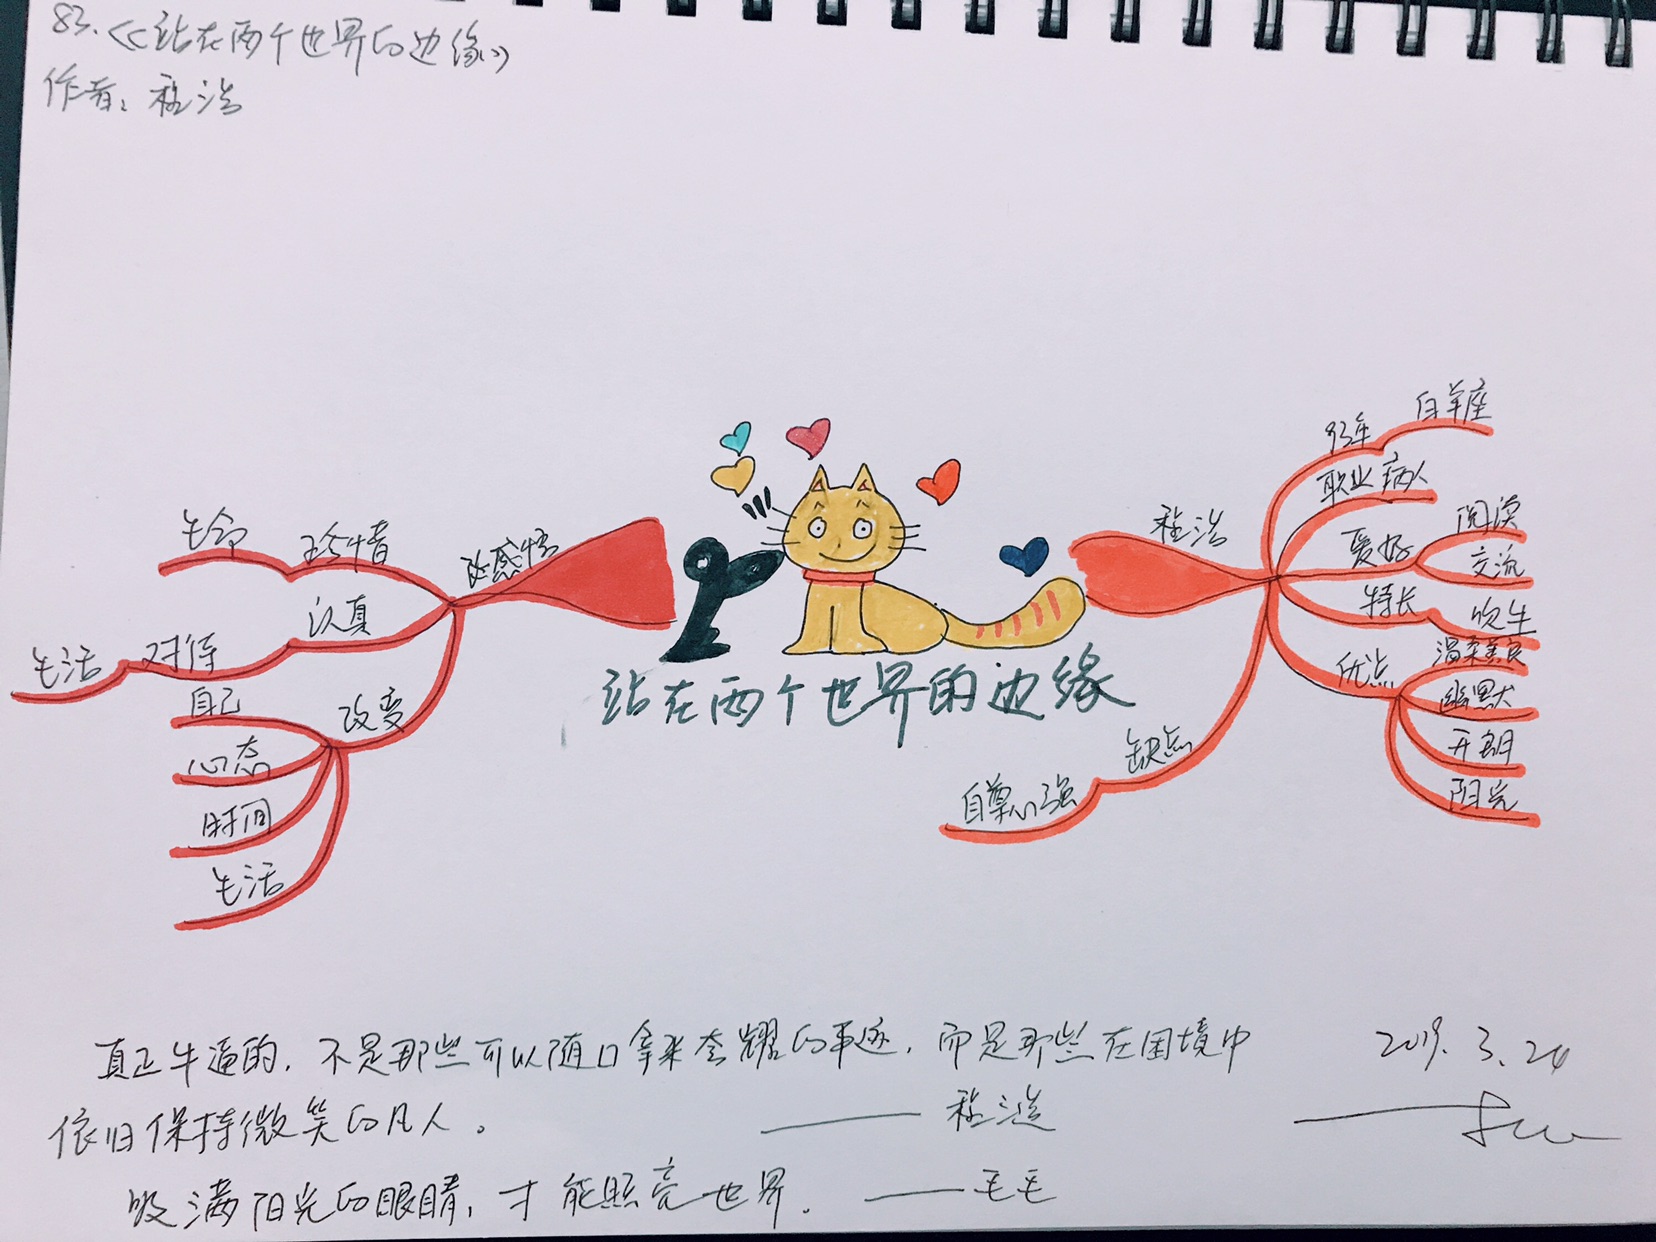 83.《站在两个世界的边缘》
作者：程浩
生命
珍惜
改感悟
认真
对待
生活
改变
自己
心态
时间
生活
站在两个世界的边缘
程浩
93年
白羊座
职业病人
爱好
阅读
交流
特长
吹牛
优点
温柔善良
幽默
开朗
阳光
缺点
自尊心强
真正牛逼的，不是那些可以随口拿来夸耀的事迹，而是那些在困境中
依旧保持微笑的凡人。 ——程浩
2019.3.24
吸满阳光的眼睛，才能照亮世界。 ——毛毛